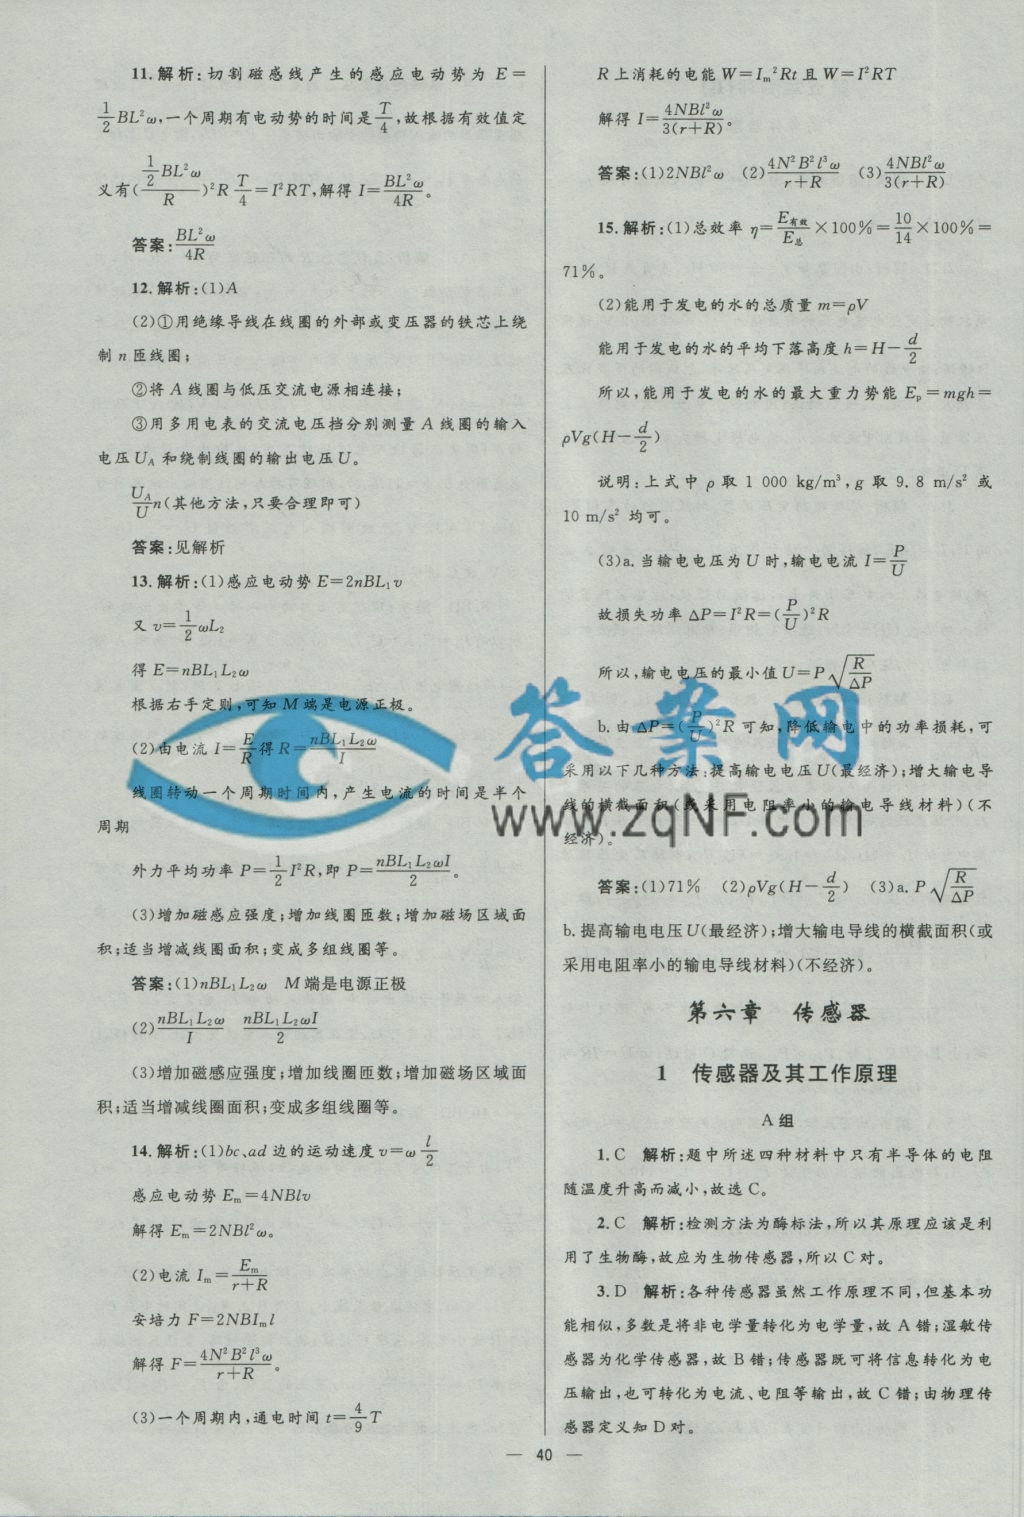 11.解析:切割磁感线产生的感应电动势为 E=
1/2 BL²ω,一个周期有电动势的时间是 T/4,故根据有效值定
义有(1/2 BL²ω / R)²R T/4=I²RT,解得 I=BL²ω/4R。
答案:BL²ω/4R
12.解析:(1)A
(2)①用绝缘导线在线圈的外部或变压器的铁芯上绕
制 n 匝线圈;
②将 A 线圈与低压交流电源相连接;
③用多用电表的交流电压挡分别测量 A 线圈的输入
电压 U_A 和绕制线圈的输出电压 U。
U_A/U n(其他方法,只要合理即可)
答案:见解析
13.解析:(1)感应电动势 E=2nBL₁v
又 v=1/2 ωL₂
得 E=nBL₁L₂ω
根据右手定则,可知 M 端是电源正极。
(2)由电流 I=E/R得 R=nBL₁L₂ω/I
线圈转动一个周期时间内,产生电流的时间是半个
周期
外力平均功率 P=1/2 I²R,即 P=nBL₁L₂ωI/2。
(3)增加磁感应强度;增加线圈匝数;增加磁场区域面
积;适当增减线圈面积;变成多组线圈等。
答案:(1)nBL₁L₂ω M 端是电源正极
(2)nBL₁L₂ω/I nBL₁L₂ωI/2
(3)增加磁感应强度;增加线圈匝数;增加磁场区域面
积;适当增减线圈面积;变成多组线圈等。
14.解析:(1)bc、ad 边的运动速度 v=ω l/2
感应电动势 E_m=4NBlv
解得 E_m=2NBl²ω。
(2)电流 I_m=E_m/(r+R)
安培力 F=2NBI_m l
解得 F=4N²B²l³ω/(r+R)。
(3)一个周期内,通电时间 t=4/9 T
R 上消耗的电能 W=I_m²Rt 且 W=I²RT
解得 I=4NBl²ω/3(r+R)。
答案:(1)2NBl²ω (2)4N²B²l³ω/(r+R) (3)4NBl²ω/3(r+R)
15.解析:(1)总效率 η=E有效/E总×100%=10/14×100%=
71%。
(2)能用于发电的水的总质量 m=ρV
能用于发电的水的平均下落高度 h=H-d/2
所以,能用于发电的水的最大重力势能 E_p=mgh=
ρVg(H-d/2)
说明:上式中 ρ 取 1 000 kg/m³,g 取 9.8 m/s² 或
10 m/s² 均可。
(3)a.当输电电压为 U 时,输电电流 I=P/U
故损失功率 ΔP=I²R=(P/U)²R
所以,输电电压的最小值 U=P√(R/ΔP)
b.由 ΔP=(P/U)²R 可知,降低输电中的功率损耗,可
采用以下几种方法:提高输电电压 U(最经济);增大输电导
线的横截面积(或采用电阻率小的输电导线材料)(不
经济)。
答案:(1)71% (2)ρVg(H-d/2) (3)a.P√(R/ΔP)
b.提高输电电压 U(最经济);增大输电导线的横截面积(或
采用电阻率小的输电导线材料)(不经济)。
第六章 传感器
1 传感器及其工作原理
A 组
1.C 解析:题中所述四种材料中只有半导体的电阻
随温度升高而减小,故选 C。
2.C 解析:检测方法为酶标法,所以其原理应该是利
用了生物酶,故应为生物传感器,所以 C 对。
3.D 解析:各种传感器虽然工作原理不同,但基本功
能相似,多数是将非电学量转化为电学量,故 A 错;湿敏传
感器为化学传感器,故 B 错;传感器既可将信息转化为电
压输出,也可转化为电流、电阻等输出,故 C 错;由物理传
感器定义知 D 对。
— 40 —
答案网
www.zqNF.com